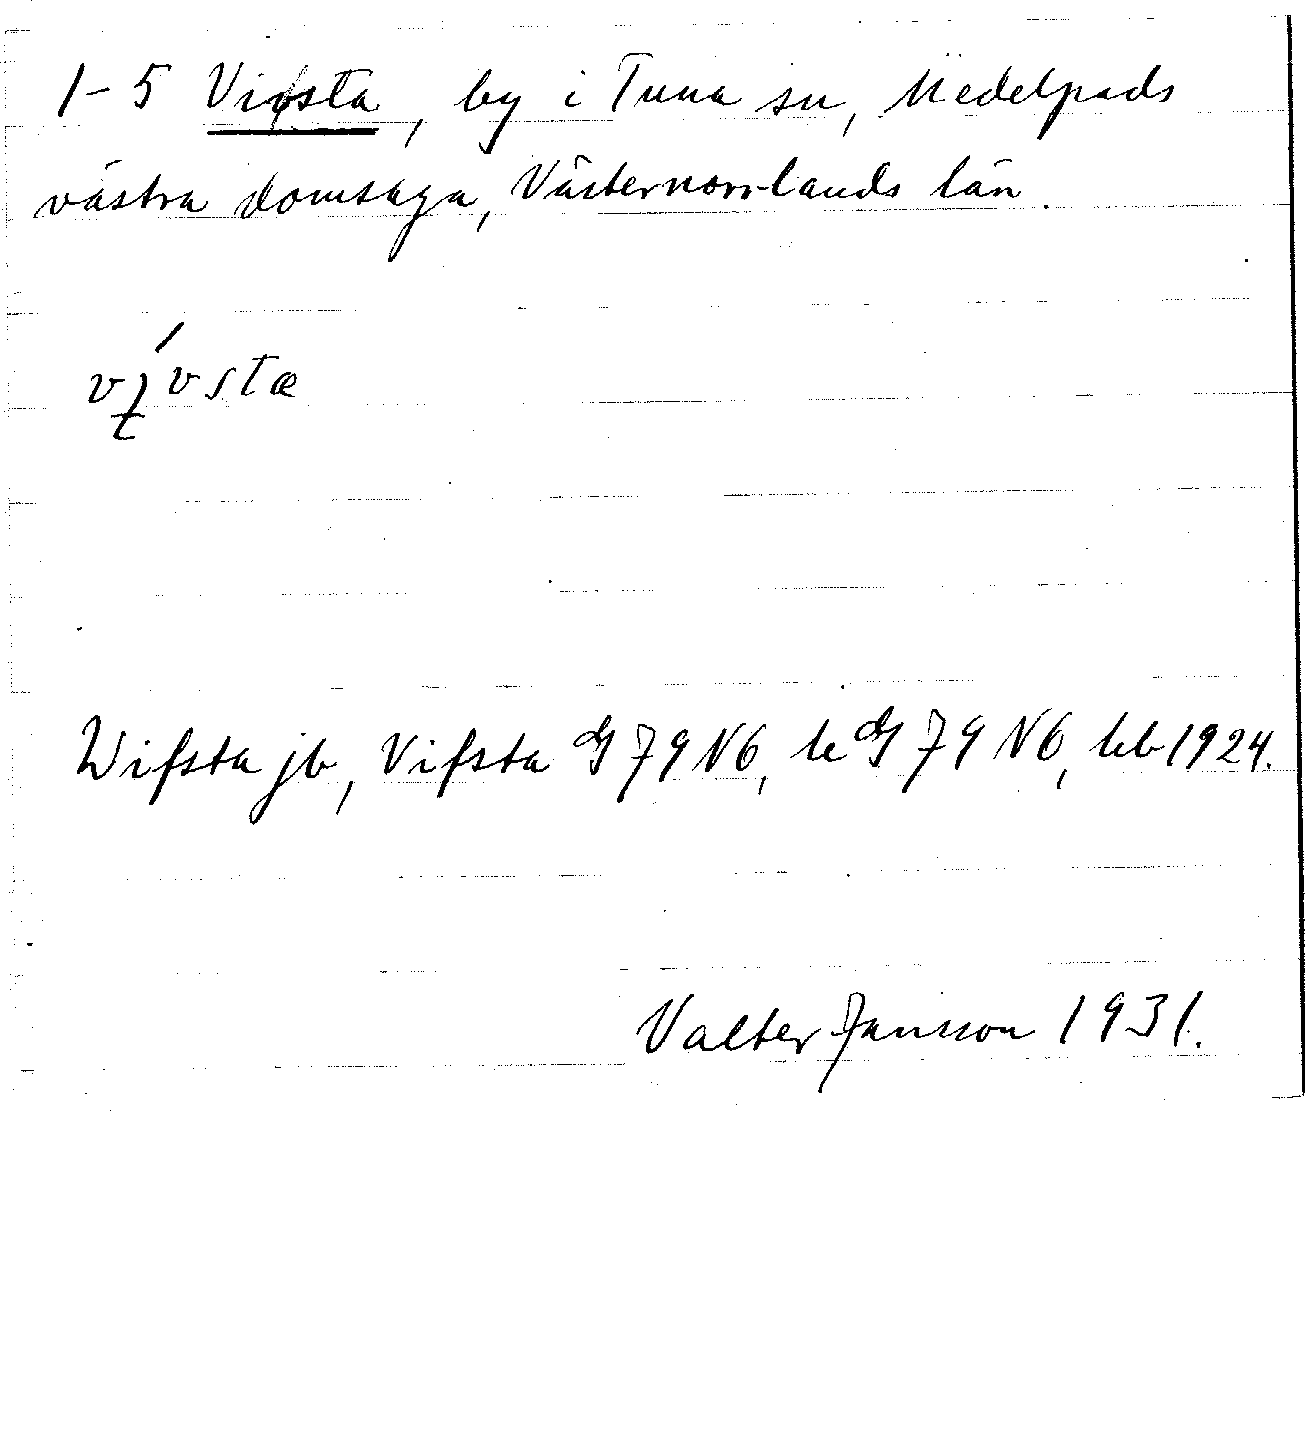 1-5 Vifsta, by i Tuna sn, Medelpads
västra domsaga, Västernorrlands län.
Wifsta jb, Vifsta G 79 N6, le G 79 N6, kb 1924.
Valter Jansson 1931.